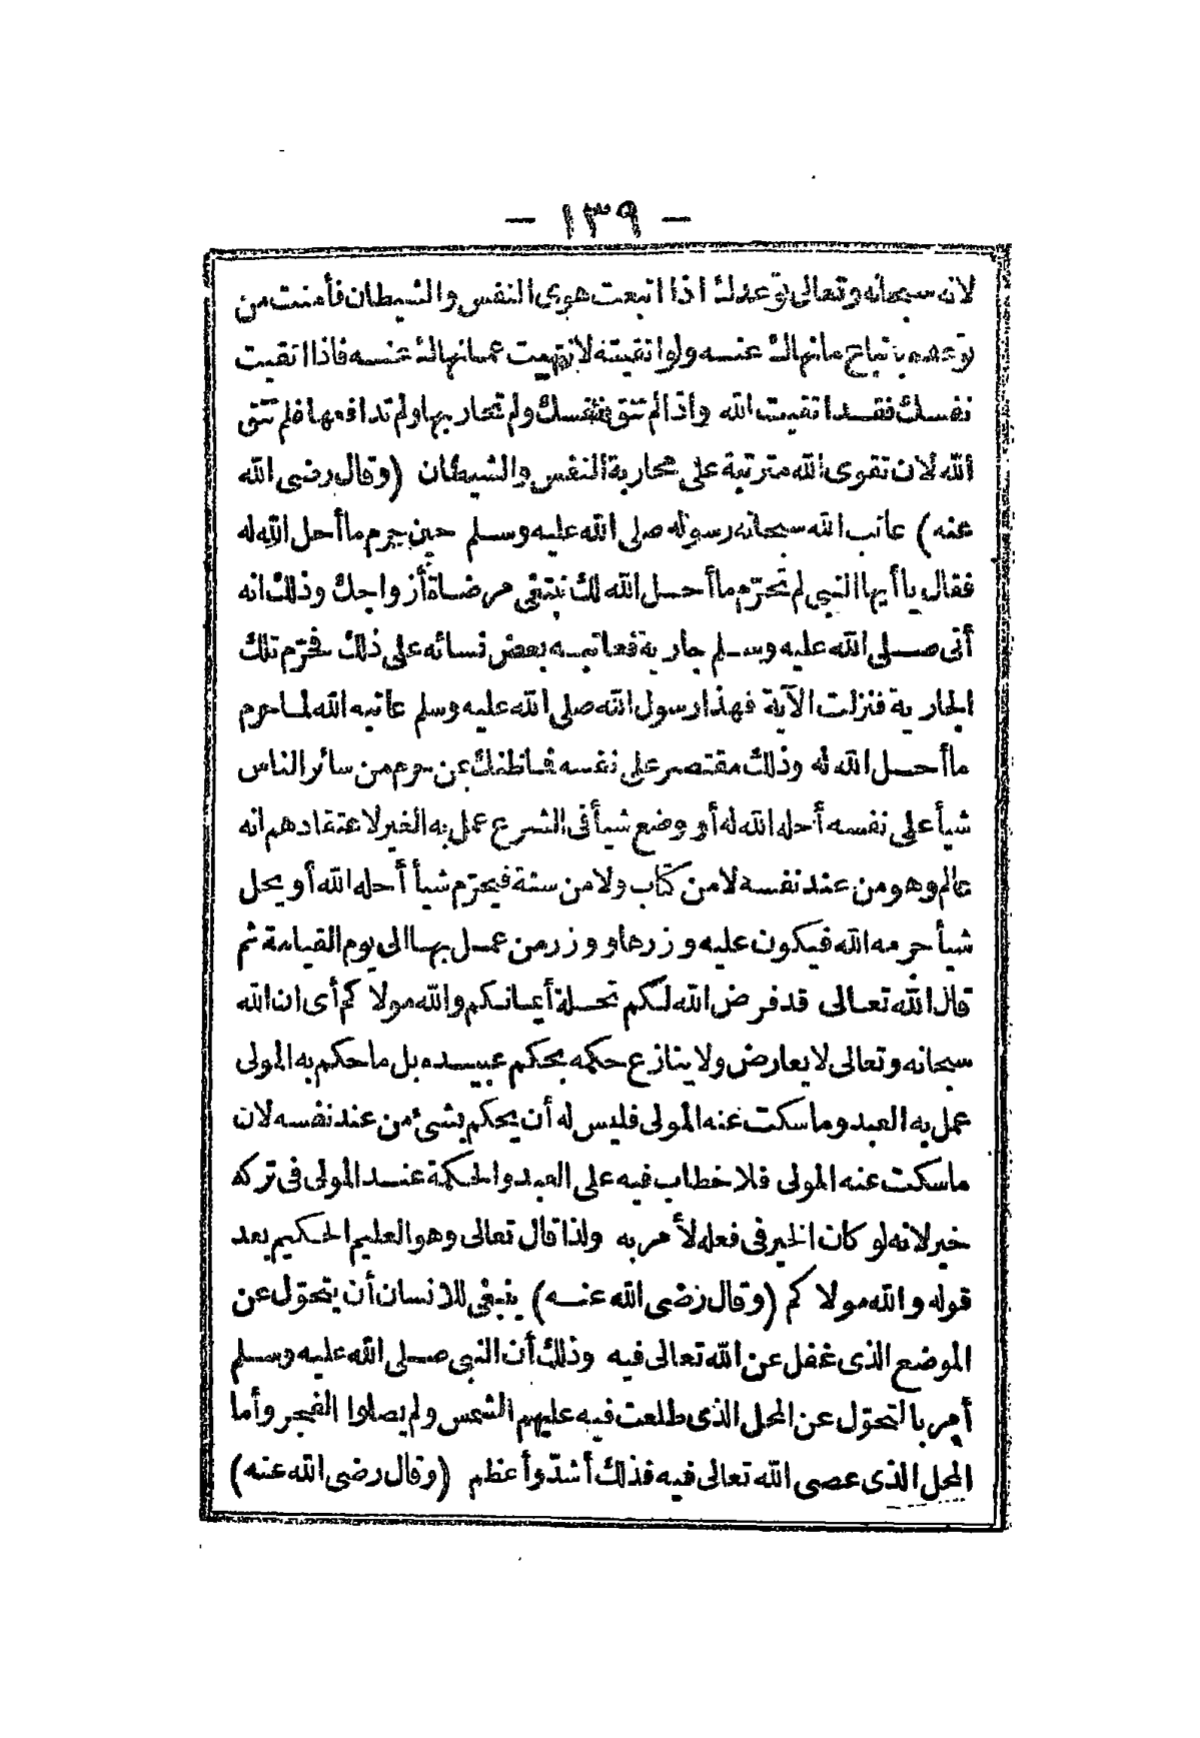 - ١٣٩ -
لانه سبحانه وتعالى توعدك اذا اتبعت هوى النفس والشيطان فأمنت من
توعده باتباع ما نهاك عنه ولو اتقيته لانتهيت عما نهاك عنه فاذا اتقيت
نفسك فقد اتقيت الله واذا لم تتق نفسك ولم تحاربها ولم تدافعها فلم تتق
الله لان تقوى الله مترتبة على محاربة النفس والشيطان (وقال رضى الله
عنه) عاتب الله سبحانه رسوله صلى الله عليه وسلم حين حرم ما أحل الله له
فقال يا أيها النبى لم تحرّم ما أحل الله لك تبتغى مرضاة أزواجك وذلك انه
أتى صلى الله عليه وسلم جارية فعاتبه بعض نسائه على ذلك فحرّم تلك
الجارية فنزلت الآية فهذا رسول الله صلى الله عليه وسلم عاتبه الله لما حرم
ما أحل الله له وذلك مقتصر على نفسه فما ظنك بمن حرم من سائر الناس
شيأ على نفسه أحله الله له أو وضع شيأ فى الشرع عمل به الغير لاعتقادهم انه
عالم وهو من عند نفسه لا من كتاب ولا من سنة فيحرّم شيأ أحله الله أو يحل
شيأ حرمه الله فيكون عليه وزرها ووزر من عمل بها الى يوم القيامة ثم
قال الله تعالى قد فرض الله لكم تحلة أيمانكم والله مولاكم أى ان الله
سبحانه وتعالى لا يعارض ولا ينازع حكمه بحكم عبيده بل ما حكم به المولى
عمل به العبد وما سكت عنه المولى فليس له أن يحكم بشئ من عند نفسه لان
ما سكت عنه المولى فلا خطاب فيه على العبد والحكمة عند المولى فى تركه
خير لانه لو كان الخير فى فعله لأمر به ولذا قال تعالى وهو العليم الحكيم بعد
قوله والله مولاكم (وقال رضى الله عنه) ينبغى للانسان أن يتحوّل عن
الموضع الذى غفل عن الله تعالى فيه وذلك أن النبى صلى الله عليه وسلم
أمر بالتحوّل عن المحل الذى طلعت فيه عليهم الشمس ولم يصلوا الفجر وأما
المحل الذى عصى الله تعالى فيه فذلك أشدّ وأعظم (وقال رضى الله عنه)